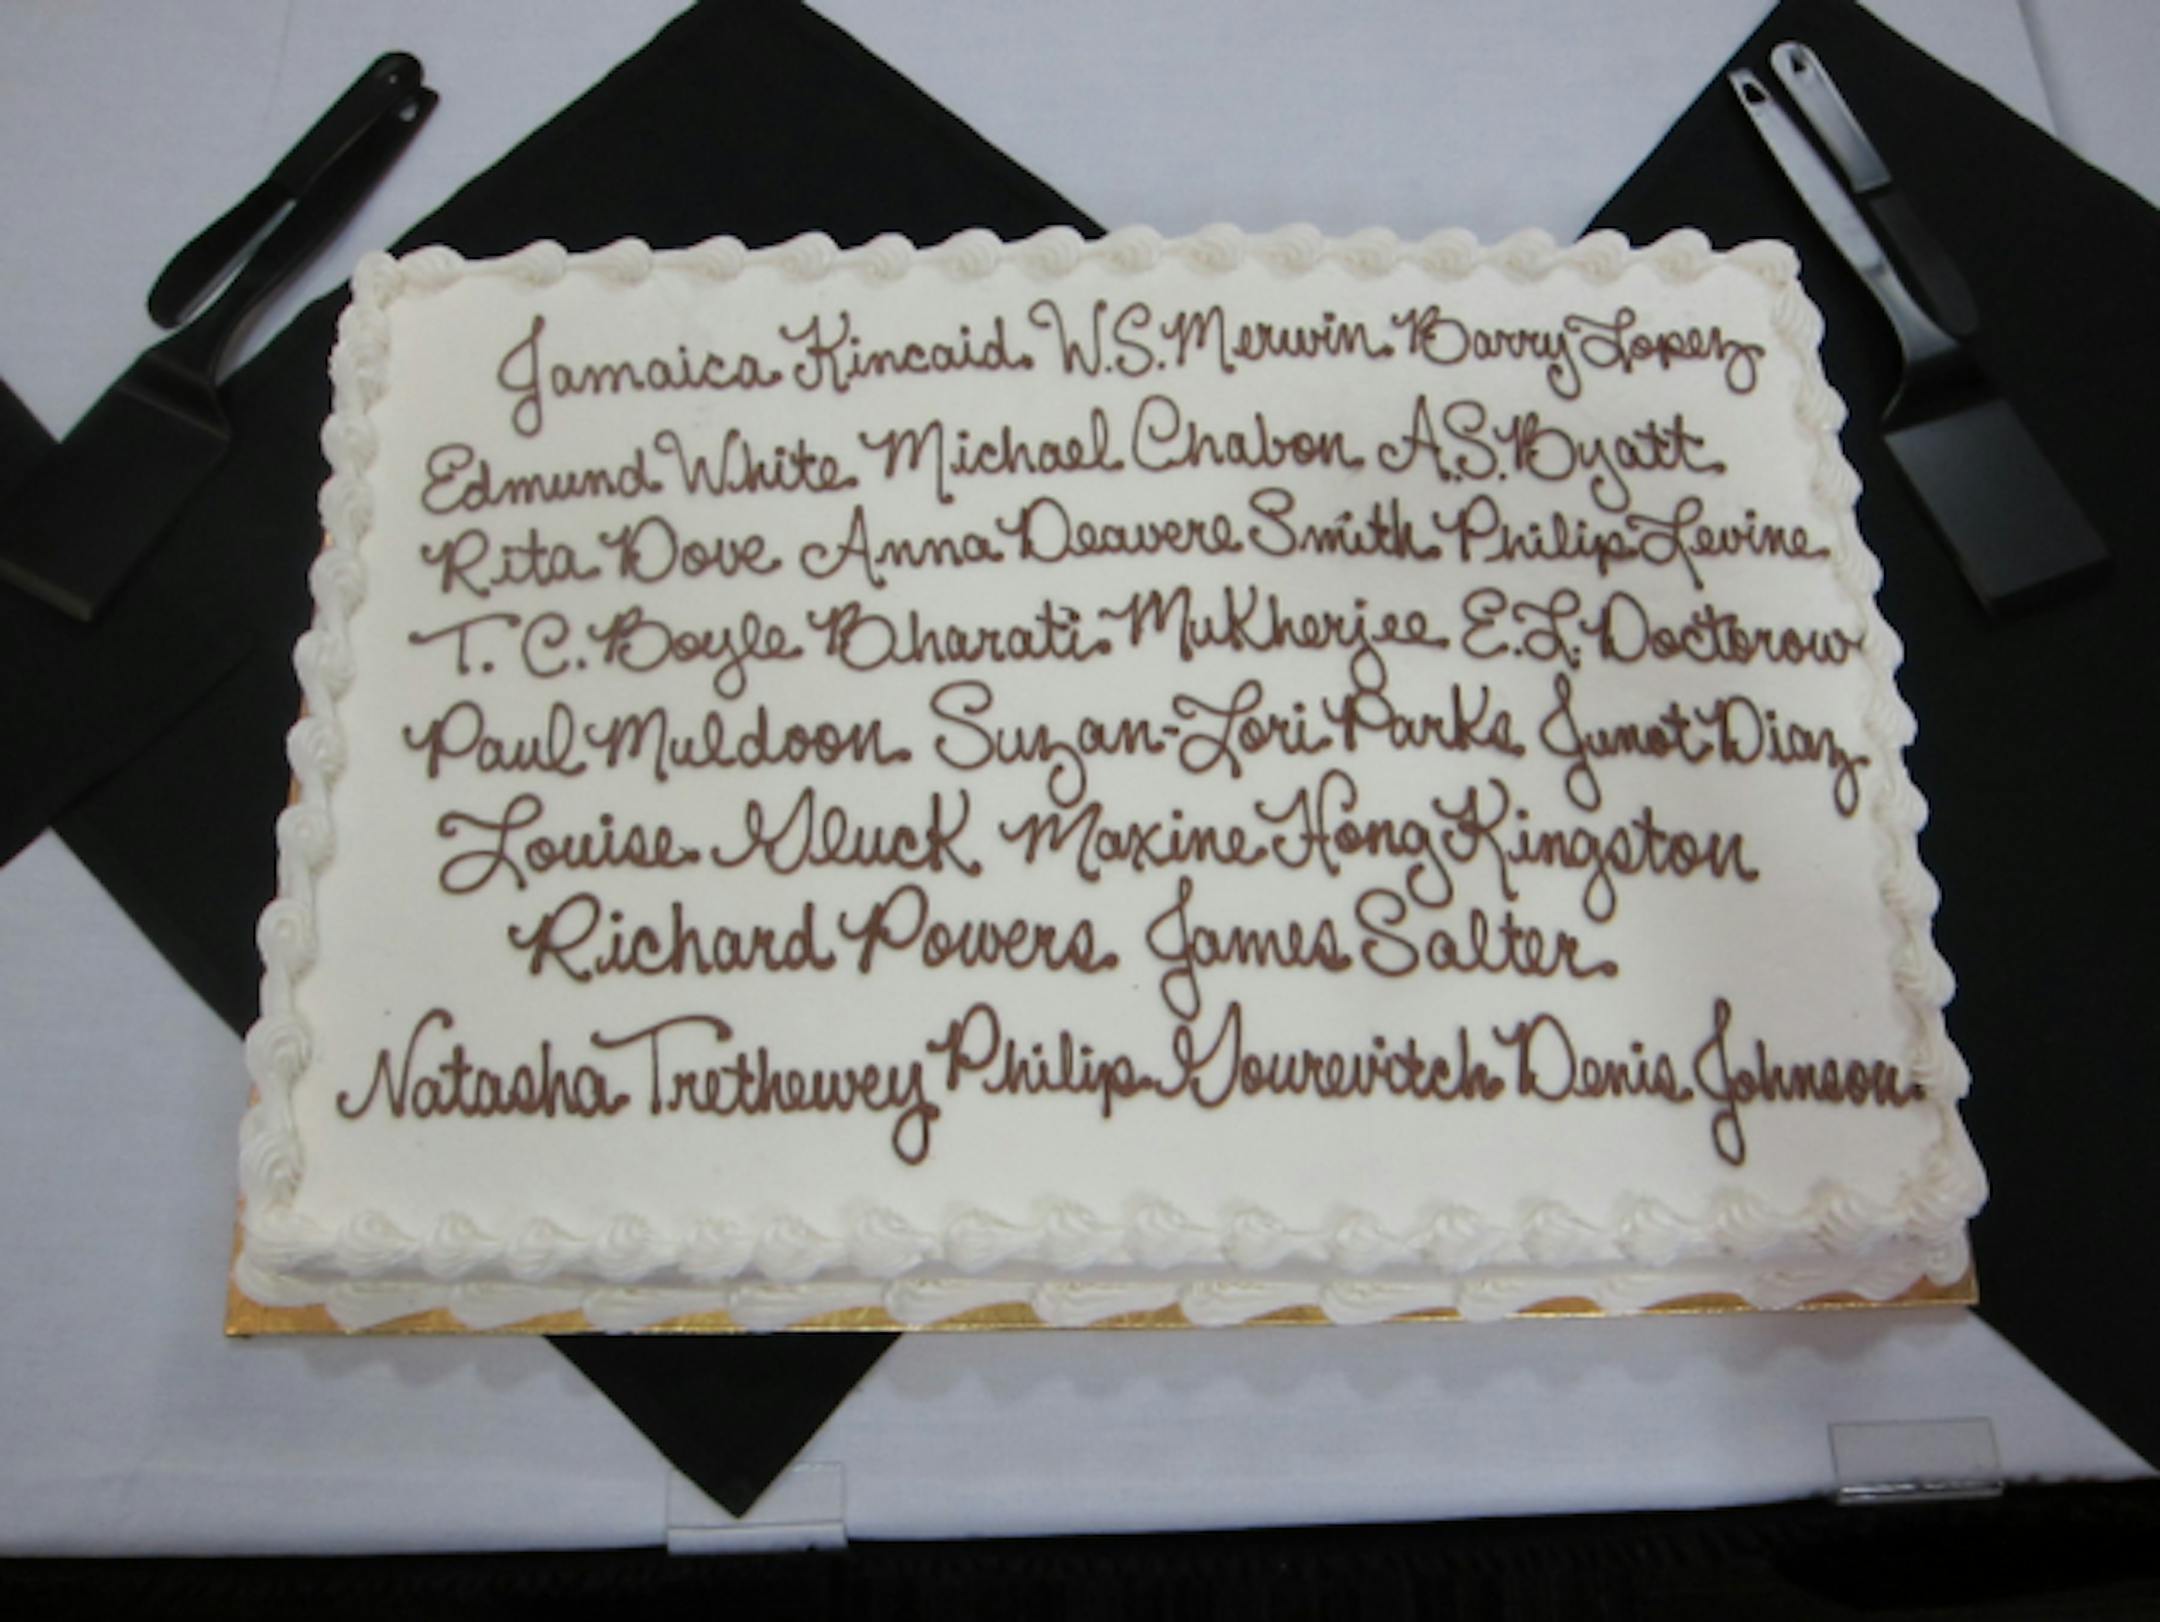 Jamaica Kincaid W.S. Merwin Barry Lopez
Edmund White Michael Chabon A.S. Byatt
Rita Dove Anna Deavere Smith Philip Levine
T. C. Boyle Bharati Mukherjee E.L. Doctorow
Paul Muldoon Suzan-Lori Parks Junot Diaz
Louise Gluck Maxine Hong Kingston
Richard Powers James Salter
Natasha Trethewey Philip Gourevitch Denis Johnson